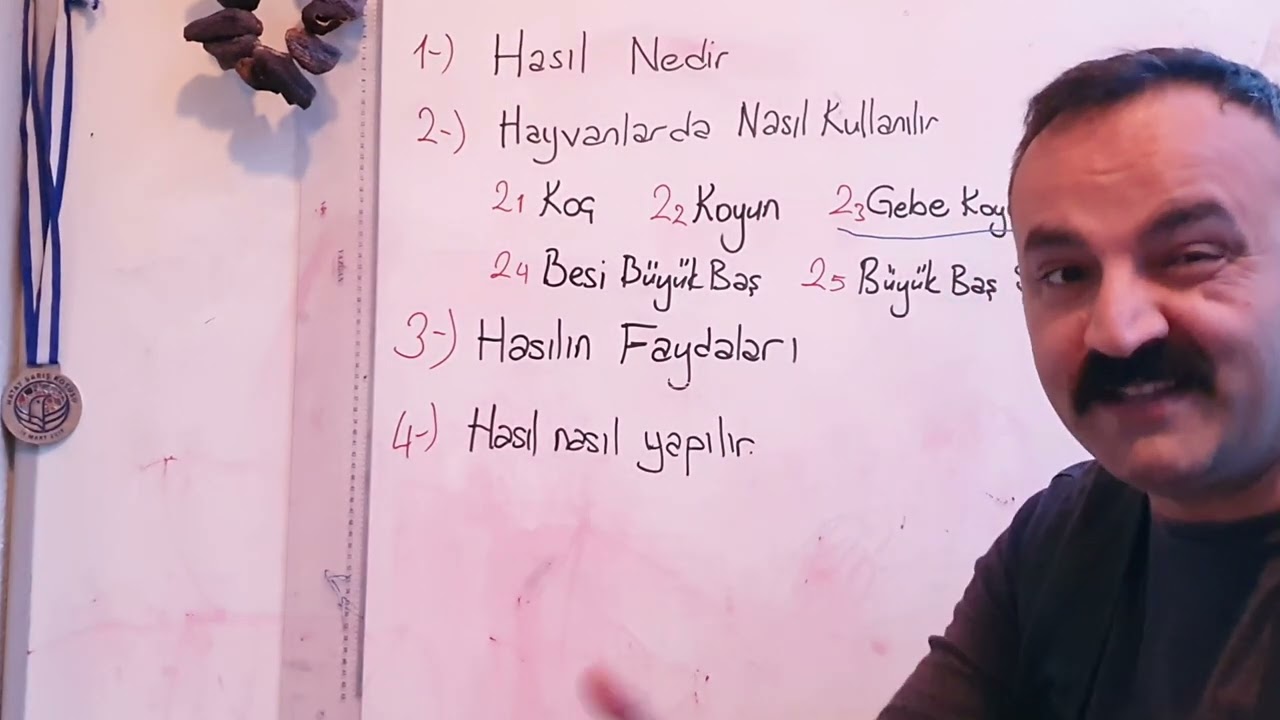 1-) Hasıl Nedir
2-) Hayvanlarda Nasıl Kullanılır
21 Koç 22 Koyun 23 Gebe Koy
24 Besi Büyük Baş 25 Büyük Baş
3-) Hasılın Faydaları
4-) Hasıl nasıl yapılır.